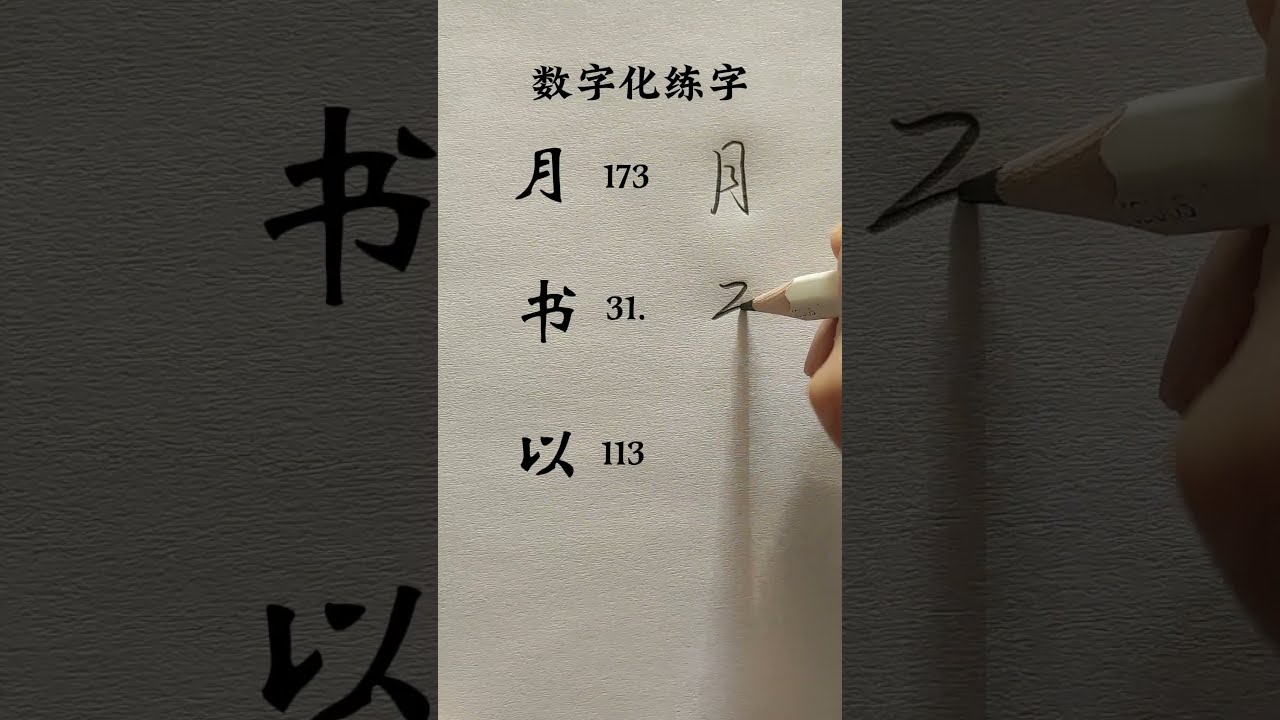 数字化练字
月 173 月
书 31.
以 113